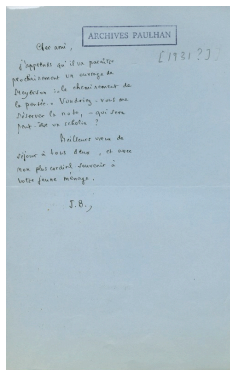 ARCHIVES PAULHAN
[1931?]
Cher ami,
J'apprends qu'il va paraître
prochainement un ouvrage de
Meyerson : le cheminement de
la pensée. Voudriez-vous me
réserver la note, – qui sera
peut-être un scholie ?
Meilleurs vœux de
séjour à tous deux, et avec
mon plus cordial souvenir à
votre jeune ménage.
J.B.,